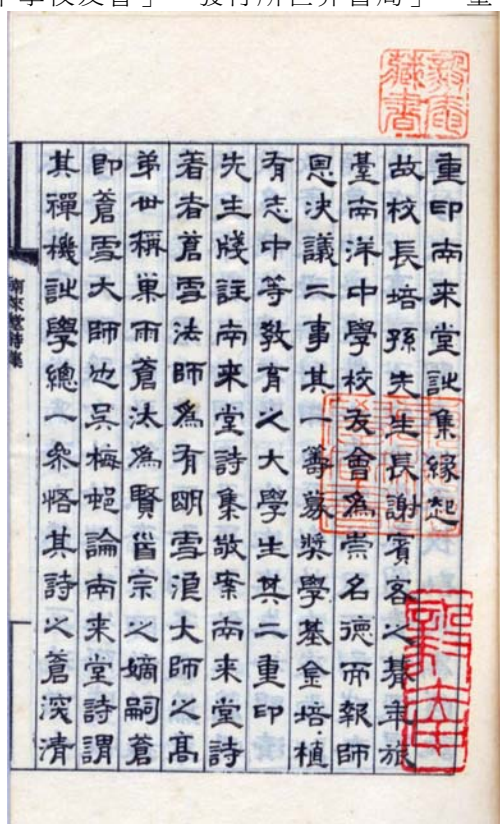 學校友會」 發行所世界書局」
重印南来堂詩集緣起
故校長培孫先生長謝賓客之朞年旅
臺南洋中學校友會為崇名德而報師
恩決議二事其一籌募獎學基金培植
有志中等教育之大學生其二重印
先生牋註南来堂詩集敬案南来堂詩
著者蒼雪法師為有明雪浪大師之高
弟世稱巢雨蒼汰為賢首宗之嫡嗣蒼
即蒼雪大師也吳梅邨論南来堂詩謂
其禪機詩學總一參悟其詩之蒼深清
南來堂詩集